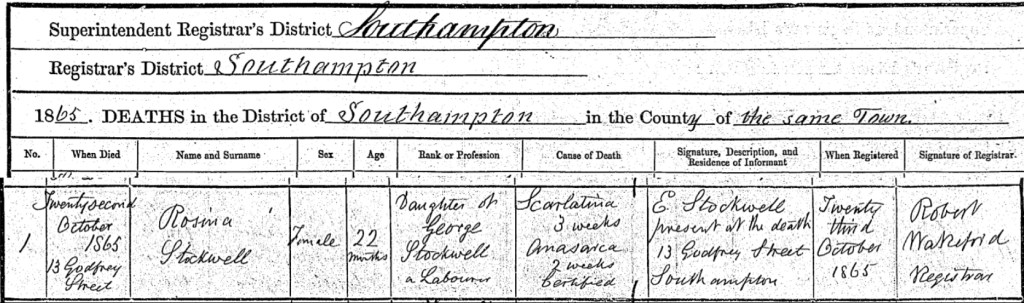 Superintendent Registrar's District Southampton
Registrar's District Southampton
1865. DEATHS in the District of Southampton in the County of the same Town.
No. When Died Name and Surname Sex Age Rank or Profession Cause of Death Signature, Description, and Residence of Informant When Registered Signature of Registrar.
1
Twenty second
October
1865
13 Godfrey
Street
Rosina
Stockwell
Female
22
months
Daughter of
George
Stockwell
a Labourer
Scarlatina
3 weeks
Anasarca
2 weeks
Certified
E Stockwell
present at the death
13 Godfrey Street
Southampton
Twenty
third
October
1865
Robert
Wakeford
Registrar